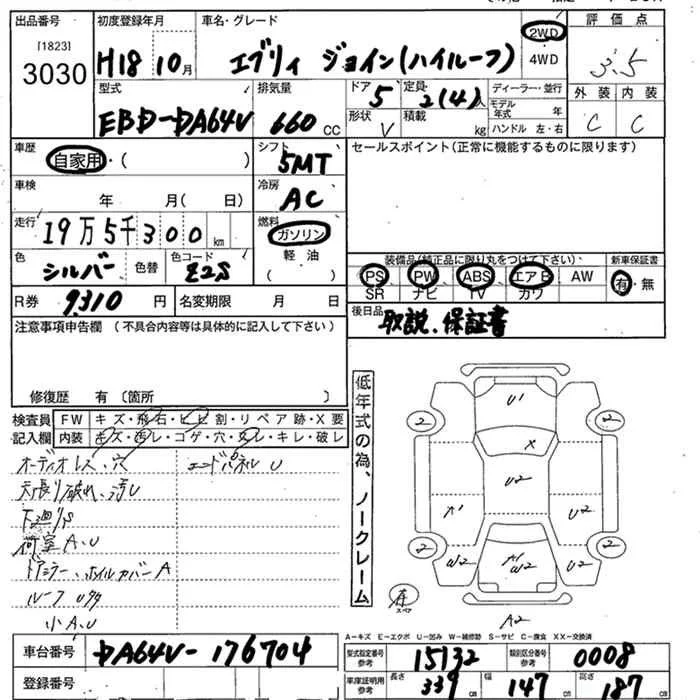 出品番号 初度登録年月 車名・グレード 評価点
[1823]
3030 H18 10月 エブリィ ジョイン(ハイルーフ) 2WD 4WD 3.5
型式 排気量 ドア 定員 ディーラー・並行 外装 内装
EBD-DA64V 660CC 5 2(4)人 モデル年式 年 C C
形状 V 積載 kg ハンドル 左・右
車歴 自家用・( ) シフト 5MT セールスポイント(正常に機能するものに限ります)
車検 年 月( 日) 冷房 AC
走行 19万5千300km 燃料 ガソリン
軽油
色 シルバー 色替 色コード Z2S ( )
装備品(純正品に限り丸をつけて下さい) 新車保証書
PS PW ABS エアB AW 有・無
SR ナビ TV カワ
R券 9310円 名変期限 月 日
後日品 取説、保証書
注意事項申告欄 (不具合内容等は具体的に記入して下さい)
修復歴 有 〔箇所 〕
検査員 FW キズ・飛石・ヒビ割・リペア跡・X要
記入欄 内装 キズ・汚レ・コゲ・穴・スレ・キレ・破レ
オーディオレス、穴 エンドパネル U
天張り破れ、汚し
下廻りS
荷室 A、U
ドアミラー、ホイルカバーA
ルーフ
小A、U
低年式の為、ノークレーム
U1
2 2
X
U2
A1 U2
2 2
W2 A1 W2 U2
スペア
A2
A-キズ E-エクボ U-凹み W-補修跡 S-サビ C-腐食 XX-交換済
車台番号 DA64V-176704
型式指定番号 参考 15132 類別区分番号 参考 0008
登録番号
車庫証明用 参考 長さ 339cm 幅 147cm 高さ 187cm